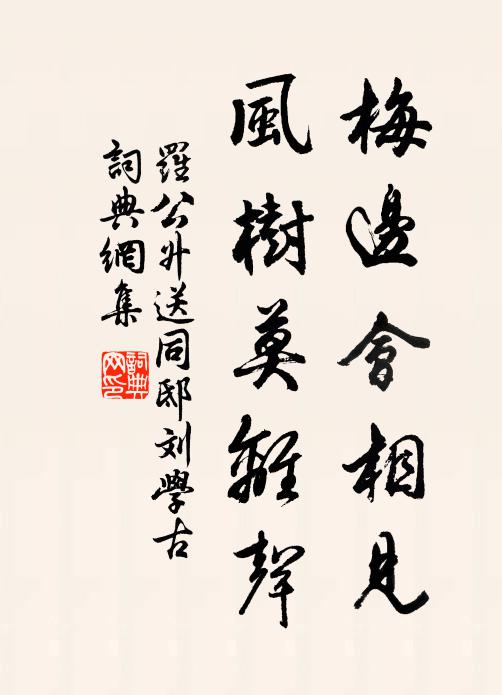 梅邊會相見
風樹莫離聲
羅公升送同邸刘學古
詞典網集
詞典網印